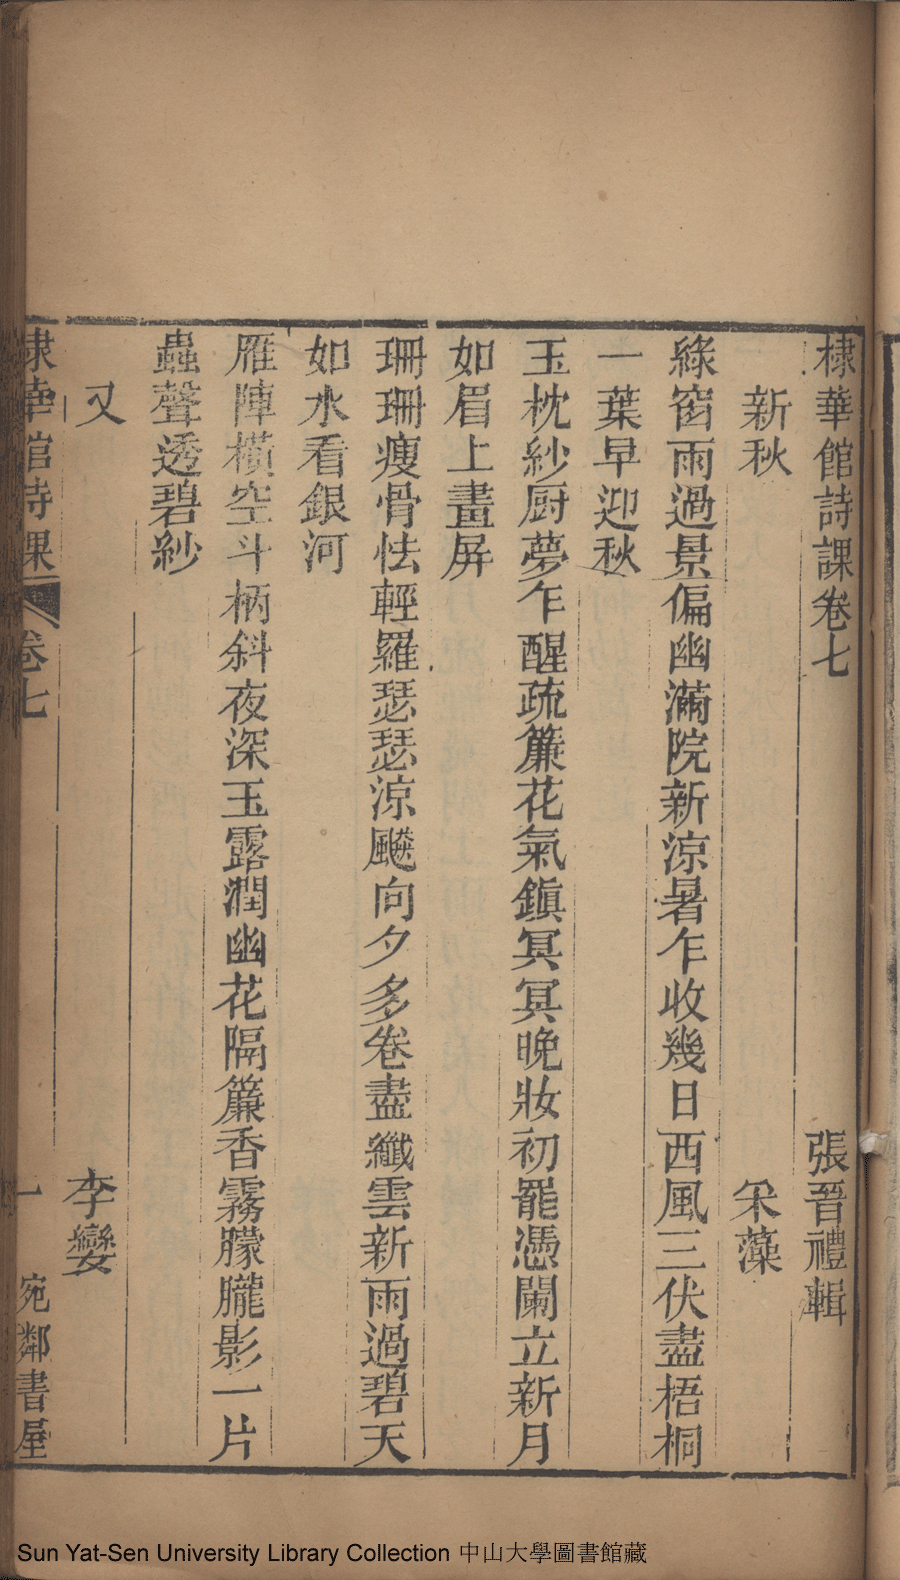 棣華館詩課卷七 張晉禮輯
新秋 采藻
綠窗雨過景偏幽滿院新涼暑乍收幾日西風三伏盡梧桐
一葉早迎秋
玉枕紗厨夢乍醒疏簾花氣鎮冥冥晚妝初罷憑闌立新月
如眉上畫屏
珊珊瘦骨怯輕羅瑟瑟涼颸向夕多卷盡纖雲新雨過碧天
如水看銀河
雁陣橫空斗柄斜夜深玉露潤幽花隔簾香霧朦朧影一片
蟲聲透碧紗
又 李孌
棣華館詩課 卷七 一 宛鄰書屋
Sun Yat-Sen University Library Collection 中山大學圖書館藏